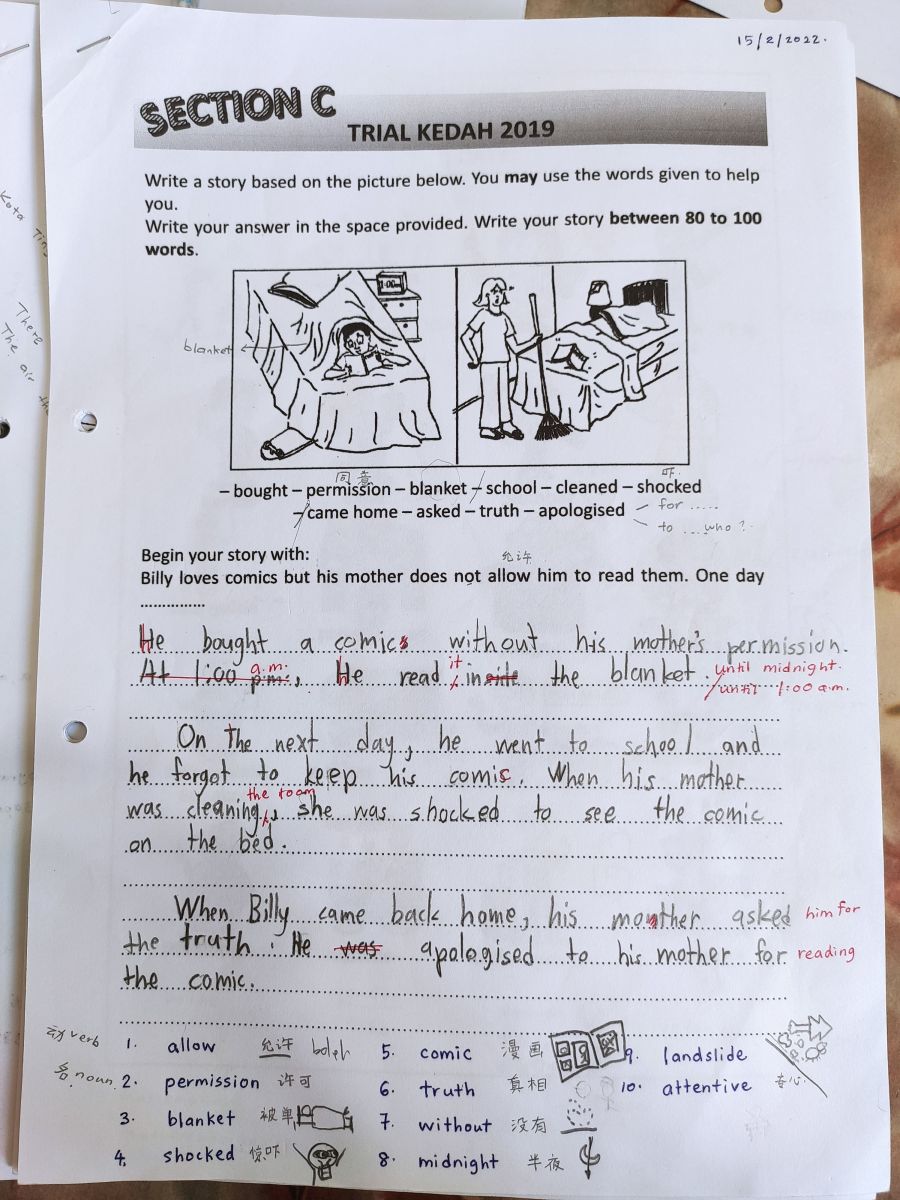 15/2/2022.
SECTION C
TRIAL KEDAH 2019
Write a story based on the picture below. You may use the words given to help
you.
Write your answer in the space provided. Write your story between 80 to 100
words.
1:00
blanket
同意
吓
– bought – permission – blanket – school – cleaned – shocked
– came home – asked – truth – apologised
for .....
to ... who?
Begin your story with:
允许
Billy loves comics but his mother does not allow him to read them. One day
...............
He bought a comics without his mother's permission.
At 1:00 p.m., He read in the blanket.
a.m.
it
until midnight.
until 1:00 a.m.
On the next day, he went to school and
he forgot to keep his comic. When his mother
the room
was cleaning, she was shocked to see the comic
on the bed.
When Billy came back home, his mother asked him for
the truth. He was apologised to his mother for reading
the comic.
动 verb
名 noun
1. allow 允许 boleh
2. permission 许可
3. blanket 被单
4. shocked 惊吓
5. comic 漫画
6. truth 真相
7. without 没有
8. midnight 半夜
9. landslide
10. attentive 专心
Kota
There
The air